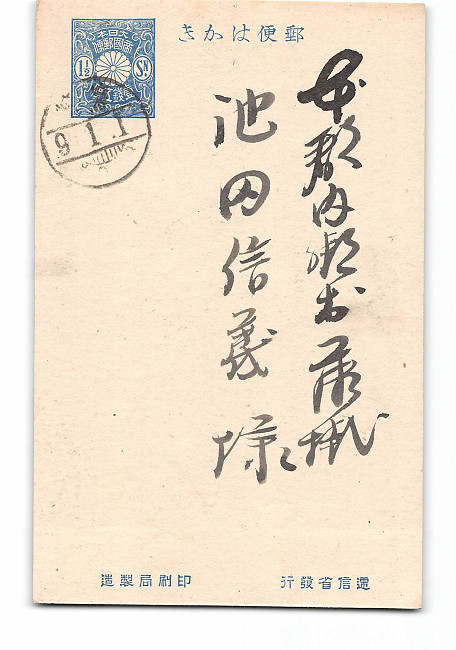 郵便はかき
大日本
帝國郵便
1½ Sn.
9.1.1
本郡内郷村
池田信義様
遞信省發行
印刷局製造